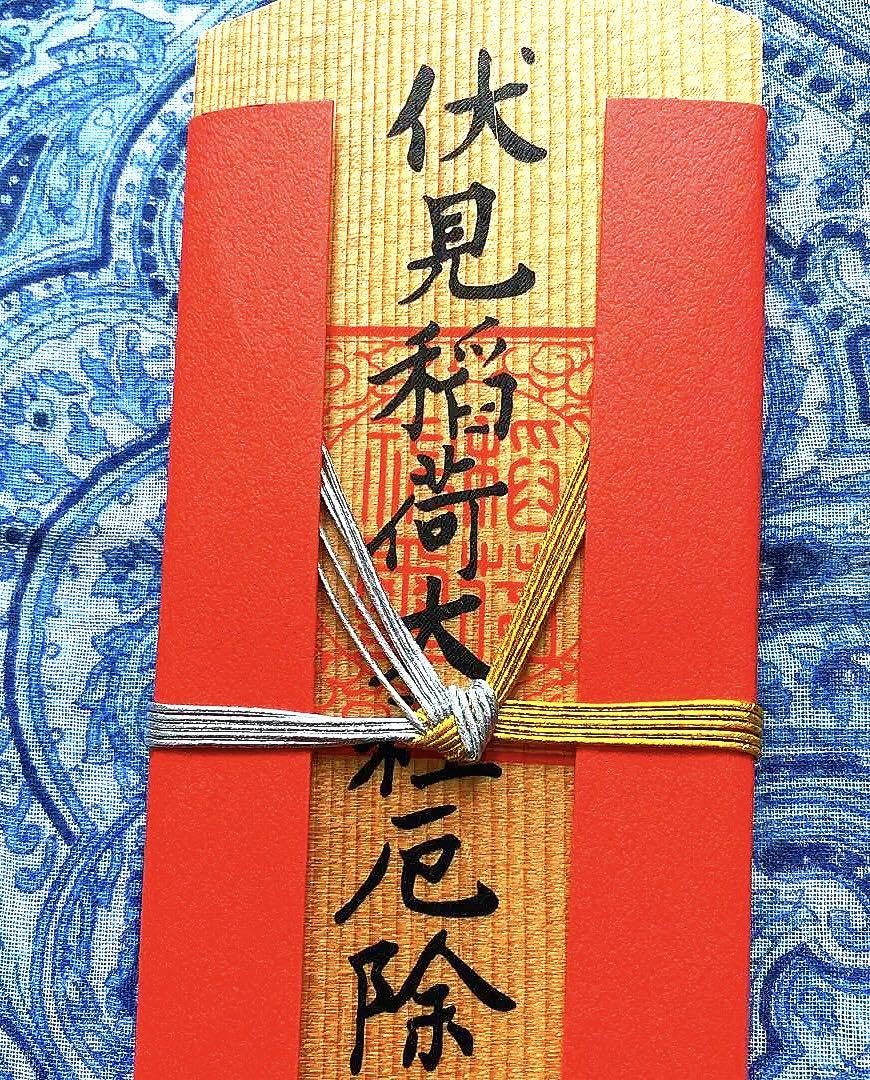 伏見稲荷大厄除